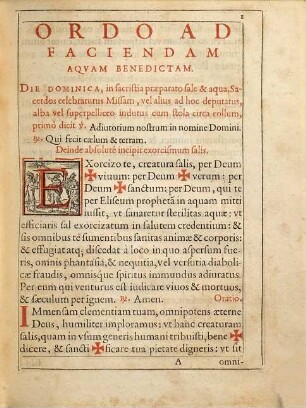 1
ORDO AD
FACIENDAM
AQVAM BENEDICTAM.
DIE DOMINICA, in sacristia præparato sale & aqua, Sa-
cerdos celebraturus Missam, vel alius ad hoc deputatus,
alba vel superpelliceo indutus cum stola circa collum,
primò dicit ℣. Adiutorium nostrum in nomine Domini.
℟. Qui fecit cælum & terram.
Deinde absolutè incipit exorcismum salis.
EXorcizo te, creatura salis, per Deum
✠ viuum: per Deum ✠ verum: per
Deum ✠ sanctum: per Deum, qui te
per Eliseum prophetã in aquam mitti
iussit, vt sanaretur sterilitas aquæ: vt
efficiaris sal exorcizatum in salutem credentium: &
sis omnibus te sumentibus sanitas animæ & corporis:
& effugiat atq; discedat à loco in quo aspersum fue-
ris, omnis phantasia, & nequitia, vel versutia diaboli-
cæ fraudis, omnisque spiritus immundus adiuratus.
Per eum qui venturus est iudicare viuos & mortuos,
& sæculum per ignem. ℟. Amen. Oratio.
IMmensam clementiam tuam, omnipotens æterne
Deus, humiliter imploramus: vt hanc creaturam
salis, quam in vsum generis humani tribuisti, bene ✠
dicere, & sancti ✠ ficare tua pietate digneris: vt sit
A omni-